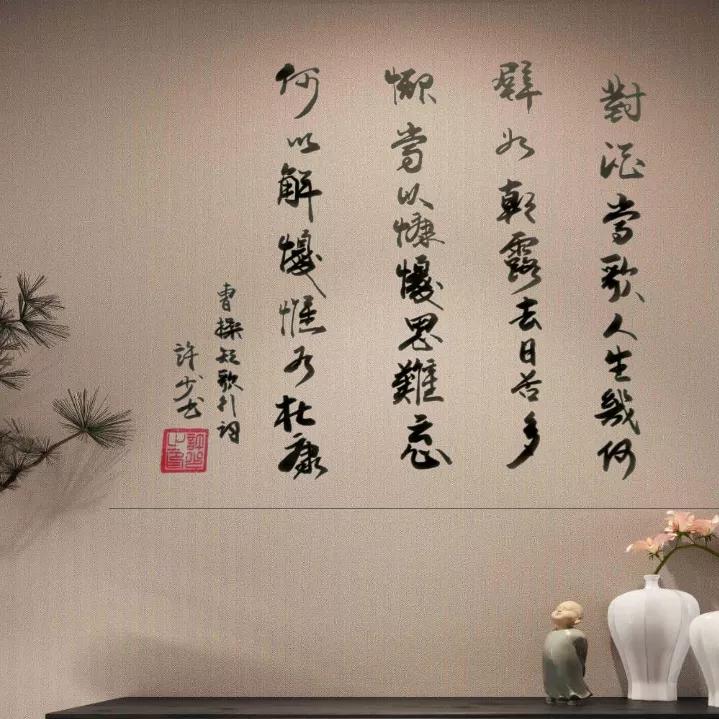 對酒當歌人生幾何
譬如朝露去日苦多
慨當以慷懮思難忘
何以解懮惟有杜康
曹操短歌行詞
許少